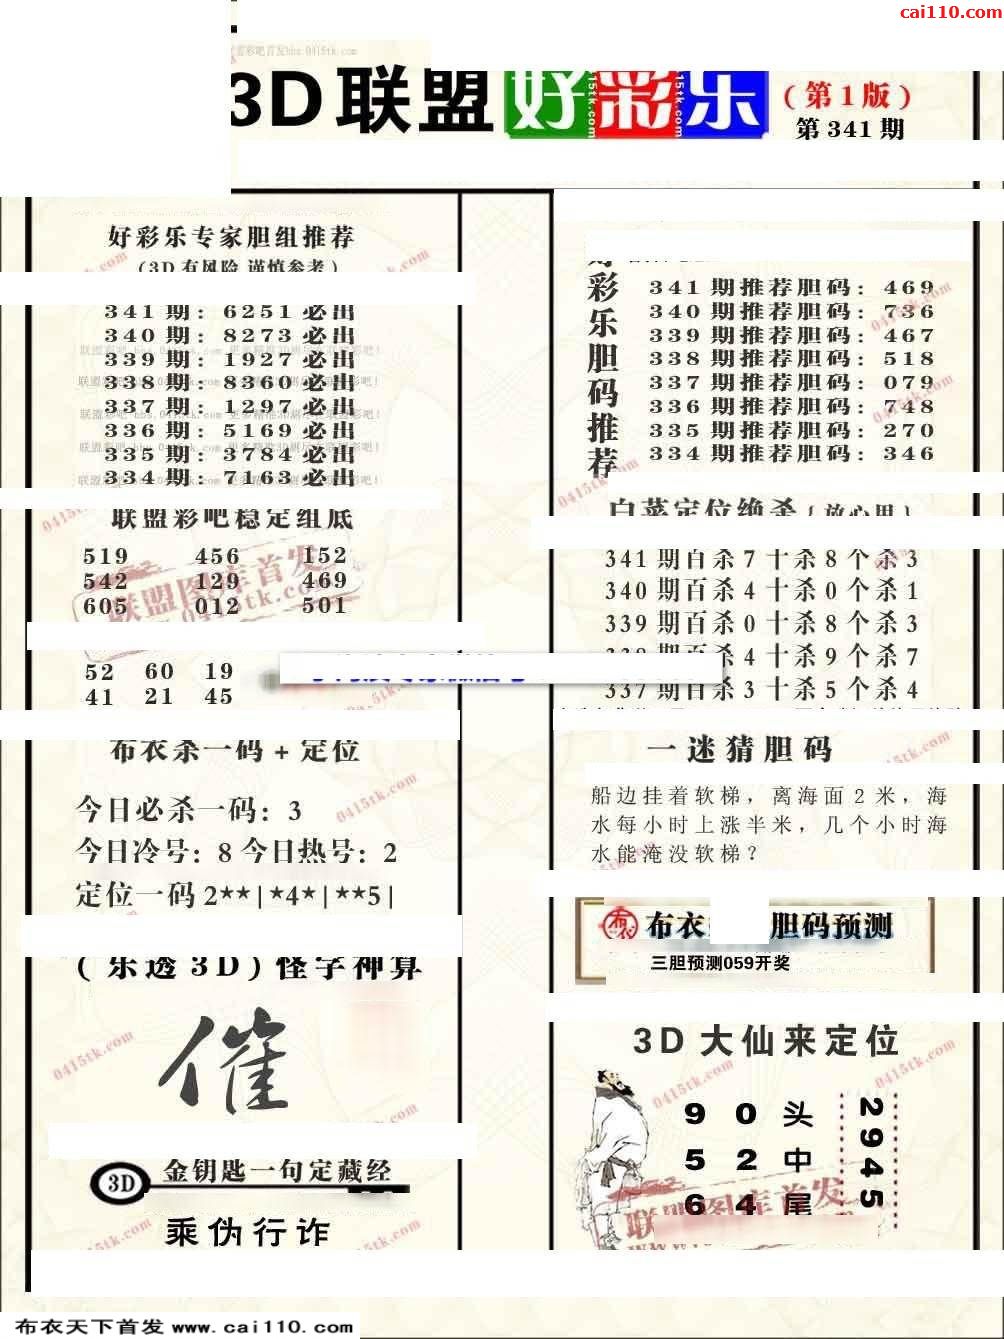 cai110.com
3D联盟好彩乐
(第1版)
第341期
好彩乐专家胆组推荐
(3D有风险 谨慎参考)
341期: 6251必出
340期: 8273必出
339期: 1927必出
338期: 8360必出
337期: 1297必出
336期: 5169必出
335期: 3784必出
334期: 7163必出
联盟彩吧稳定组底
519 456 152
542 129 469
605 012 501
52 60 19
41 21 45
布衣杀一码+定位
今日必杀一码: 3
今日冷号: 8 今日热号: 2
定位一码 2**|*4*|**5|
(乐透3D)怪字神算
催
3D 金钥匙一句定藏经
乘伪行诈
彩乐胆码推荐
341期推荐胆码: 469
340期推荐胆码: 736
339期推荐胆码: 467
338期推荐胆码: 518
337期推荐胆码: 079
336期推荐胆码: 748
335期推荐胆码: 270
334期推荐胆码: 346
白菜定位绝杀
341期百杀7十杀8个杀3
340期百杀4十杀0个杀1
339期百杀0十杀8个杀3
338期百杀4十杀9个杀7
337期百杀3十杀5个杀4
一迷猜胆码
船边挂着软梯，离海面2米，海
水每小时上涨半米，几个小时海
水能淹没软梯？
布衣 胆码预测
三胆预测059开奖
3D大仙来定位
9 0 头
5 2 中
6 4 尾
2945
联盟图库首发
0415tk.com
布衣天下首发 www.cai110.com